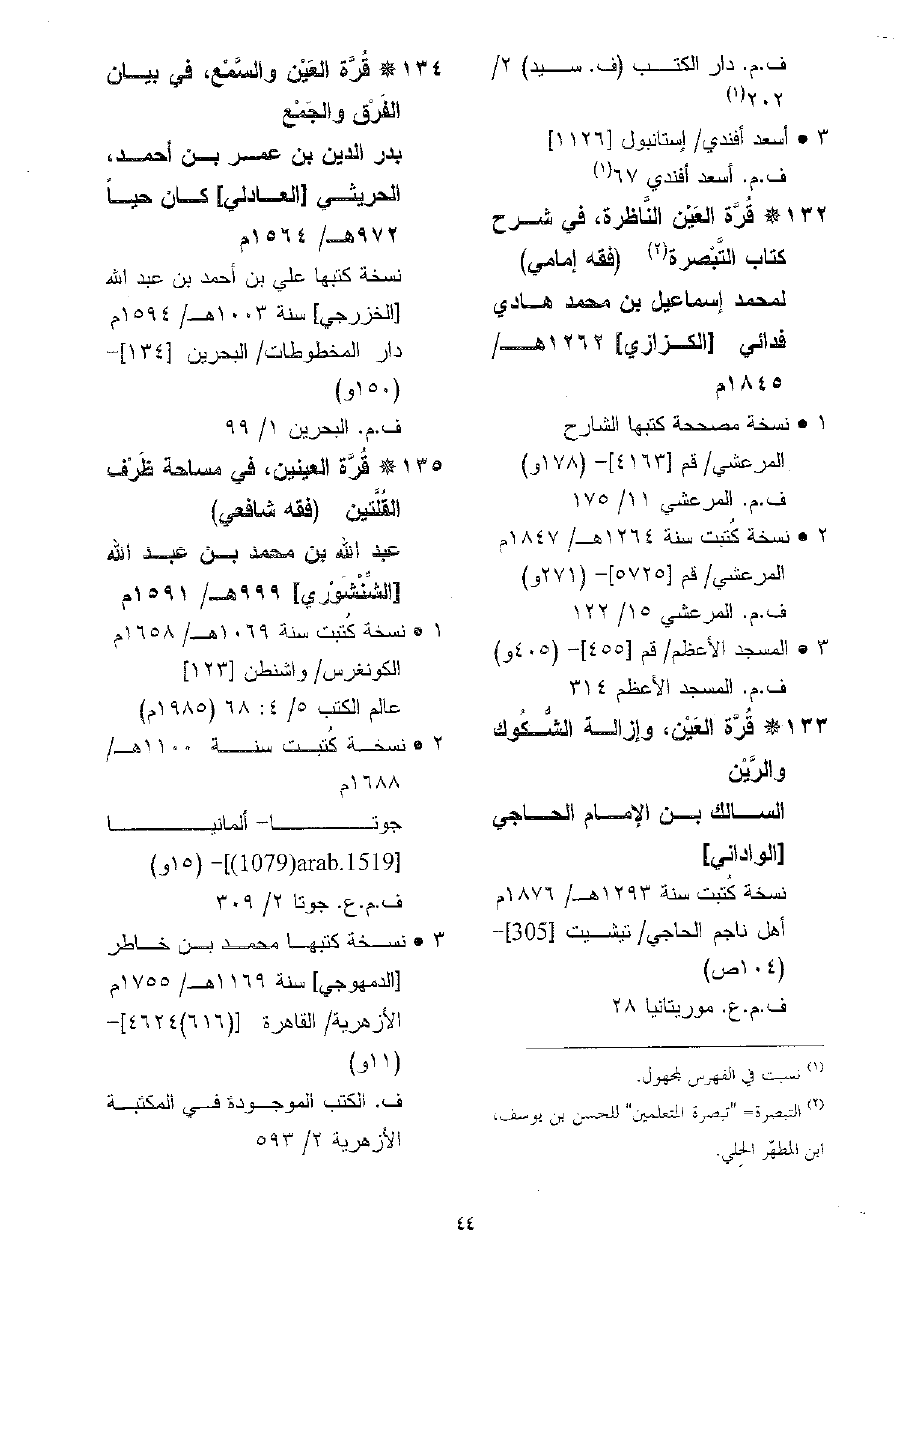 ف.م. دار الكتب (ف. سيد) ٢/
٢٠٢(١)
٣ • أسعد أفندي/ إستانبول [١١٢٦]
ف.م. أسعد أفندي ٦٧(١)
١٣٢* قُرَّة العَيْن النَّاظرة، في شرح
كتاب التَّبْصرة(٢) (فقه إمامي)
لمحمد إسماعيل بن محمد هادي
فدائي [الكزازي] ١٢٦٢هـ/
١٨٤٥م
١ • نسخة مصححة كتبها الشارح
المرعشي/ قم [٤١٦٣]- (١٧٨و)
ف.م. المرعشي ١١/ ١٧٥
٢ • نسخة كُتبت سنة ١٢٦٤هـ/ ١٨٤٧م
المرعشي/ قم [٥٧٢٥]- (٢٧١و)
ف.م. المرعشي ١٥/ ١٢٢
٣ • المسجد الأعظم/ قم [٤٥٥]- (٤٠٥و)
ف.م. المسجد الأعظم ٣١٤
١٣٣* قُرَّة العَيْن، وإزالة الشُّكُوك
والرَّيْن
السالك بن الإمام الحاجي
[الواداني]
نسخة كُتبت سنة ١٢٩٣هـ/ ١٨٧٦م
أهل ناجم الحاجي/ تيشيت [305]-
(١٠٤ص)
ف.م.ع. موريتانيا ٢٨
(١) نسبت في الفهرس لمجهول.
(٢) التبصرة= "تبصرة المتعلمين" للحسن بن يوسف،
ابن المطهّر الحلي.
١٣٤* قُرَّة العَيْن والسَّمْع، في بيان
الفَرْق والجَمْع
بدر الدين بن عمر بن أحمد،
الحريثي [العادلي] كان حياً
٩٧٢هـ/ ١٥٦٤م
نسخة كتبها علي بن أحمد بن عبد الله
[الخزرجي] سنة ١٠٠٣هـ/ ١٥٩٤م
دار المخطوطات/ البحرين [١٣٤]-
(١٥٠و)
ف.م. البحرين ١/ ٩٩
١٣٥* قُرَّة العينين، في مساحة ظَرْف
القُلَّتين (فقه شافعي)
عبد الله بن محمد بن عبد الله
[الشِّنْشَوْري] ٩٩٩هـ/ ١٥٩١م
١ • نسخة كُتبت سنة ١٠٦٩هـ/ ١٦٥٨م
الكونغرس/ واشنطن [١٢٣]
عالم الكتب ٥/ ٤: ٦٨ (١٩٨٥م)
٢ • نسخة كُتبت سنة ١١٠٠هـ/
١٦٨٨م
جوتا- ألمانيا
[(1079)arab.1519]- (١٥و)
ف.م.ع. جوتا ٢/ ٣٠٩
٣ • نسخة كتبها محمد بن خاطر
[الدمهوجي] سنة ١١٦٩هـ/ ١٧٥٥م
الأزهرية/ القاهرة [(٦١٦)٤٦٢٤]-
(١١و)
ف. الكتب الموجودة في المكتبة
الأزهرية ٢/ ٥٩٣
٤٤